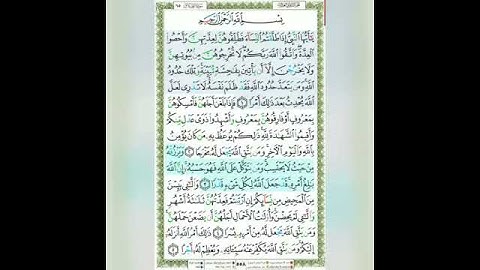 بِسْمِ اللَّهِ الرَّحْمَٰنِ الرَّحِيمِ
يَٰٓأَيُّهَا النَّبِيُّ إِذَا طَلَّقْتُمُ النِّسَآءَ فَطَلِّقُوهُنَّ لِعِدَّتِهِنَّ وَأَحْصُوا
الْعِدَّةَ وَاتَّقُوا اللَّهَ رَبَّكُمْ لَا تُخْرِجُوهُنَّ مِنۢ بُيُوتِهِنَّ
وَلَا يَخْرُجْنَ إِلَّآ أَن يَأْتِينَ بِفَٰحِشَةٍ مُّبَيِّنَةٍ وَتِلْكَ حُدُودُ
اللَّهِ وَمَن يَتَعَدَّ حُدُودَ اللَّهِ فَقَدْ ظَلَمَ نَفْسَهُۥ لَا تَدْرِي لَعَلَّ
اللَّهَ يُحْدِثُ بَعْدَ ذَٰلِكَ أَمْرًا ١ فَإِذَا بَلَغْنَ أَجَلَهُنَّ فَأَمْسِكُوهُنَّ
بِمَعْرُوفٍ أَوْ فَارِقُوهُنَّ بِمَعْرُوفٍ وَأَشْهِدُوا ذَوَيْ عَدْلٍ مِّنكُمْ
وَأَقِيمُوا الشَّهَٰدَةَ لِلَّهِ ذَٰلِكُمْ يُوعَظُ بِهِۦ مَن كَانَ يُؤْمِنُ
بِاللَّهِ وَالْيَوْمِ الْءَاخِرِ وَمَن يَتَّقِ اللَّهَ يَجْعَل لَّهُۥ مَخْرَجًا ٢ وَيَرْزُقْهُ
مِنْ حَيْثُ لَا يَحْتَسِبُ وَمَن يَتَوَكَّلْ عَلَى اللَّهِ فَهُوَ حَسْبُهُۥٓ إِنَّ اللَّهَ
بَٰلِغُ أَمْرِهِۦ قَدْ جَعَلَ اللَّهُ لِكُلِّ شَيْءٍ قَدْرًا ٣ وَالَّٰٓـِٔي يَئِسْنَ
مِنَ الْمَحِيضِ مِن نِّسَآئِكُمْ إِنِ ارْتَبْتُمْ فَعِدَّتُهُنَّ ثَلَٰثَةُ أَشْهُرٍ
وَالَّٰٓـِٔي لَمْ يَحِضْنَ وَأُولَٰتُ الْأَحْمَالِ أَجَلُهُنَّ أَن يَضَعْنَ حَمْلَهُنَّ
وَمَن يَتَّقِ اللَّهَ يَجْعَل لَّهُۥ مِنْ أَمْرِهِۦ يُسْرًا ٤ ذَٰلِكَ أَمْرُ اللَّهِ أَنزَلَهُۥٓ
إِلَيْكُمْ وَمَن يَتَّقِ اللَّهَ يُكَفِّرْ عَنْهُ سَيِّـَٔاتِهِۦ وَيُعْظِمْ لَهُۥٓ أَجْرًا ٥
٥٥٨